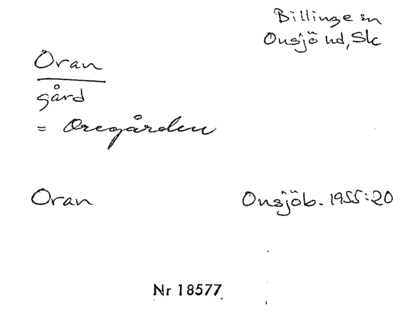 Billinge sn
Onsjö hd, Sk
Oran
gård
= Oregården
Oran Onsjöb. 1955:20
Nr 18577